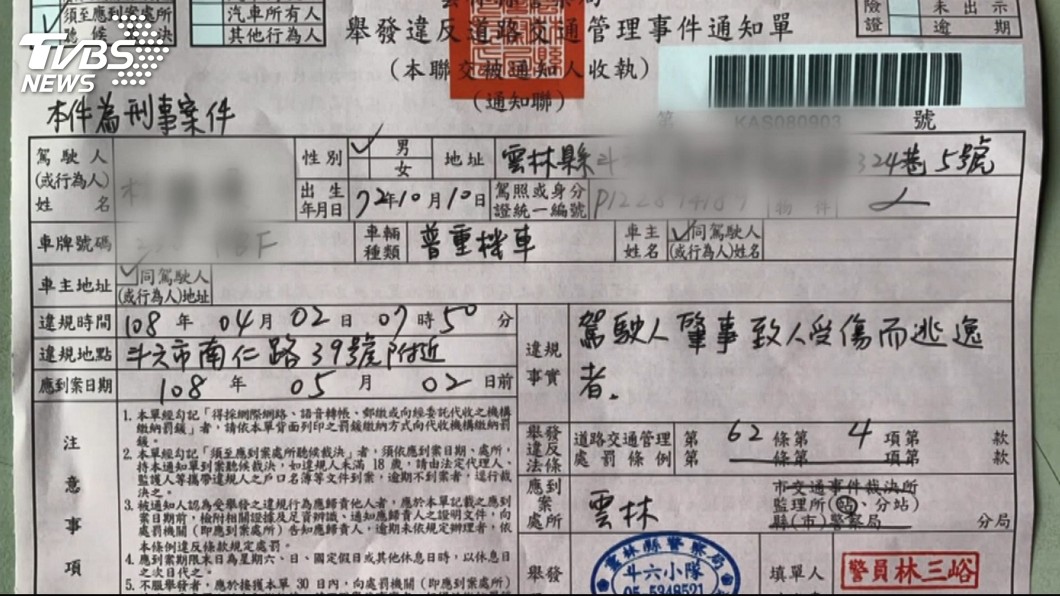 TVBS
NEWS
須至應到案處所
聽候裁決
汽車所有人
其他行為人
舉發違反道路交通管理事件通知單
(本聯交被通知人收執)
(通知聯)
驗
證
未出示
逾期
第 KAS080903 號
本件為刑事案件
駕駛人
(或行為人)
姓名
性別
男
女
地址
雲林縣 324巷5號
出生
年月日
72年10月10日
駕照或身分
證統一編號
物件
車牌號碼
F
車輛
種類
普重機車
車主
姓名
同駕駛人
(或行為人)姓名
車主地址
同駕駛人
(或行為人)地址
違規時間
108年04月02日07時50分
違規地點
斗六市南仁路39號附近
應到案日期
108年05月02日前
違規
事實
駕駛人肇事致人受傷而逃逸
者.
注意事項
1. 本單經勾記「得採網際網路、語音轉帳、郵繳或向經委託代收之機構
繳納罰鍰」者,請依本單背面列印之罰鍰繳納方式向代收機構繳納罰
鍰。
2. 本單經勾記「須至應到案處所聽候裁決」者,須依應到案日期、處所,
持本通知單到案聽候裁決,如違規人未滿18歲,請由法定代理人、
監護人等攜帶違規人之戶口名簿等文件到案,逾期不到案者,逕行裁
決之。
3. 被通知人認為受舉發之違規行為應歸責他人者,應於本單記載之應到
案日期前,檢附相關證據及足資辨識、通知應歸責人之證明文件,向
處罰機關(即應到案處所)告知應歸責人,逾期未依規定辦理者,依
本條例違反條款規定處罰。
4. 應到案期限末日為星期六、日、國定假日或其他休息日時,以休息日
之次日代之。
5. 不服舉發者,應於接獲本單30日內,向處罰機關(即應到案處所)
舉發
違反
法條
道路交通管理
處罰條例
第62條第4項第款
第條第項第款
應到
案
處所
雲林
市交通事件裁決所
監理所(站、分站)
縣(市)警察局 分局
舉發
雲林縣警察局
斗六小隊
05-5348521
填單人
警員林三峪